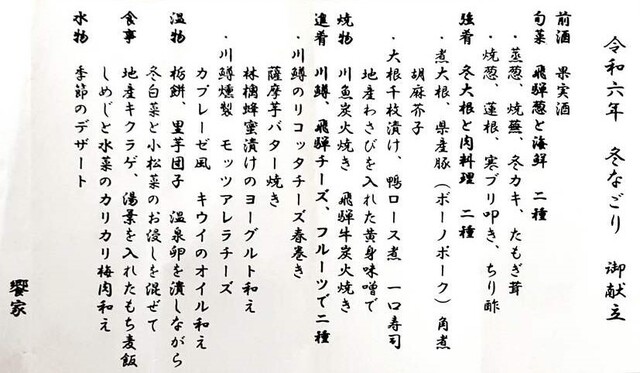 令和六年 冬なごり 御献立
前酒 果実酒
旬菜 飛騨葱と海鮮 二種
・蒸葱、焼蕪、冬カキ、たもぎ茸
・焼葱、蓮根、寒ブリ叩き、ちり酢
強肴 冬大根と肉料理 二種
・煮大根 県産豚(ボーノポーク)角煮
胡麻芥子
・大根千枚漬け、鴨ロース煮 一口寿司
地産わさびを入れた黄身味噌で
焼物 川魚炭火焼き 飛騨牛炭火焼き
進肴 川鱒、飛騨チーズ、フルーツで二種
・川鱒のリコッタチーズ春巻き
薩摩芋バター焼き
林檎蜂蜜漬けのヨーグルト和え
・川鱒燻製 モッツアレラチーズ
カプレーゼ風 キウイのオイル和え
温物 栃餅、里芋団子 温泉卵を潰しながら
冬白菜と小松菜のお浸しを混ぜて
食事 地産キクラゲ、湯葉を入れたもち麦飯
しめじと水菜のカリカリ梅肉和え
水物 季節のデザート
饗家